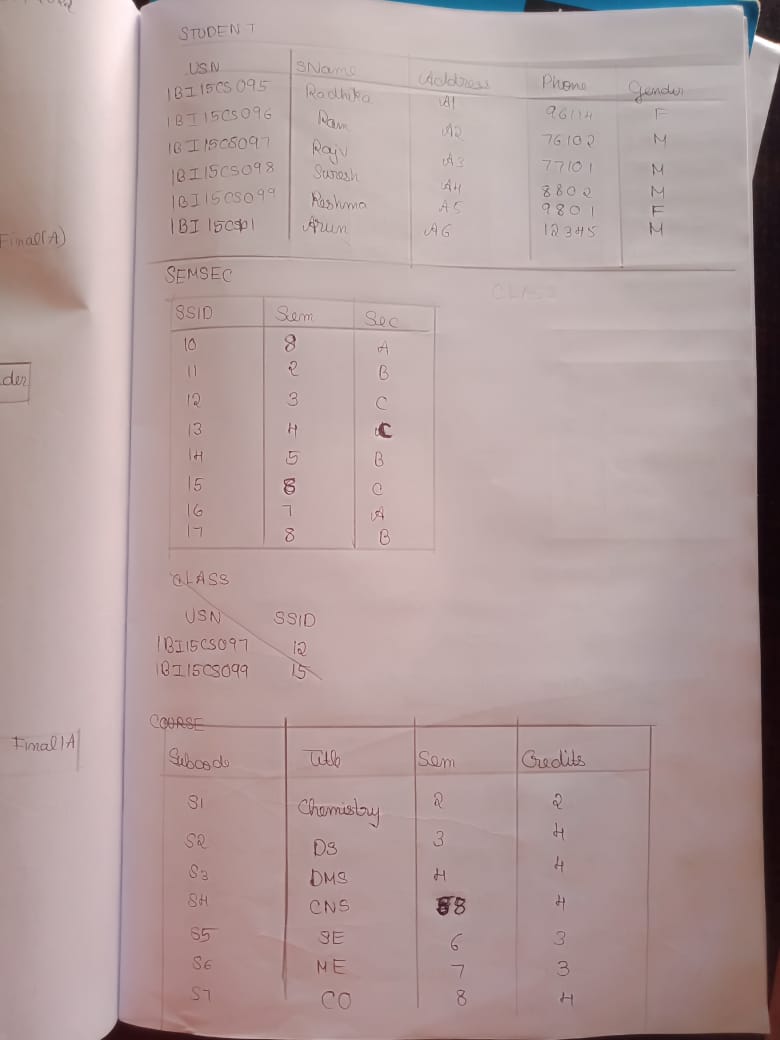 STUDENT
USN SName Address Phone Gender
1BI15CS095 Radhika A1 96114 F
1BI15CS096 Ram A2 76102 M
1BI15CS097 Rajv A3 77101 M
1BI15CS098 Suresh A4 8802 M
1BI15CS099 Reshma A5 9801 F
1BI15CS101 Arun A6 12345 M
Final(A)
SEMSEC
CLASS
SSID Sem Sec
10 8 A
11 2 B
der
12 3 C
13 4 C
14 5 B
15 8 C
16 7 A
17 8 B
CLASS
USN SSID
1BI15CS097 12
1BI15CS099 15
COURSE
FinalIA
Subcode Title Sem Credits
S1 Chemistry 2 2
S2 DS 3 4
S3 DMS 4 4
S4 CNS 8 4
S5 SE 6 3
S6 ME 7 3
S7 CO 8 4